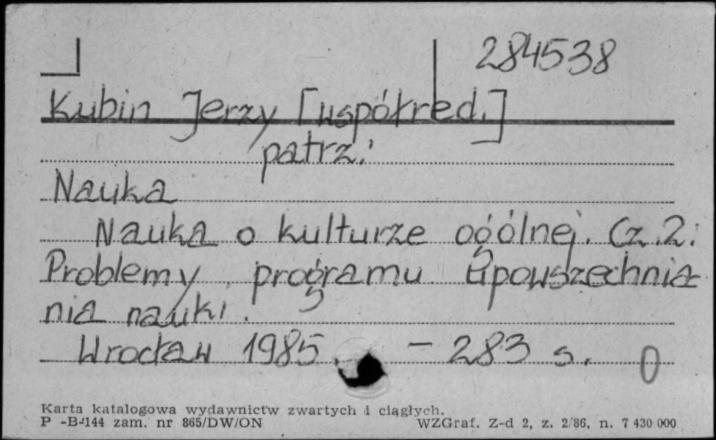 284538
Kubin Jerzy [współred.]
patrz:
Nauka
Nauka o kulturze ogólnej. Cz. 2:
Problemy programu upowszechnia-
nia nauki.
Wrocław 1985. - 283 s. 0
Karta katalogowa wydawnictw zwartych i ciągłych.
P-B-144 zam. nr 865/DW/ON WZGraf. Z-d 2, z. 2/86, n. 7 430 000